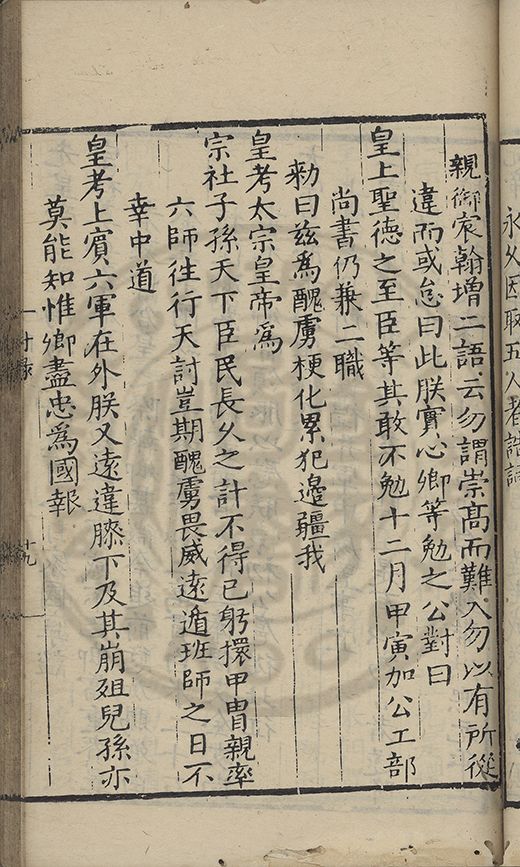 永久因取五人者誥詞
親御宸翰增二語云勿謂崇髙而難入勿以有所從
違而或怠曰此朕實心卿等勉之公對曰
皇上聖徳之至臣等其敢不勉十二月甲寅加公工部
尚書仍兼二職
勑曰兹爲醜虜梗化累犯邊疆我
皇考太宗皇帝爲
宗社子孫天下臣民長久之計不得已躬擐甲胄親率
六師徃行天討豈期醜虜畏威遠遁班師之日不
幸中道
皇考上賓六軍在外朕又遠違膝下及其崩殂兒孫亦
莫能知惟卿盡忠爲國報